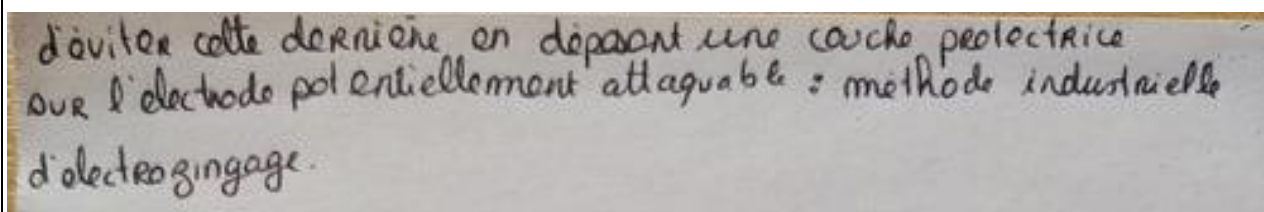 d'éviter cette dernière en déposant une couche protectrice
sur l'électrode potentiellement attaquable : méthode industrielle
d'électrozingage.